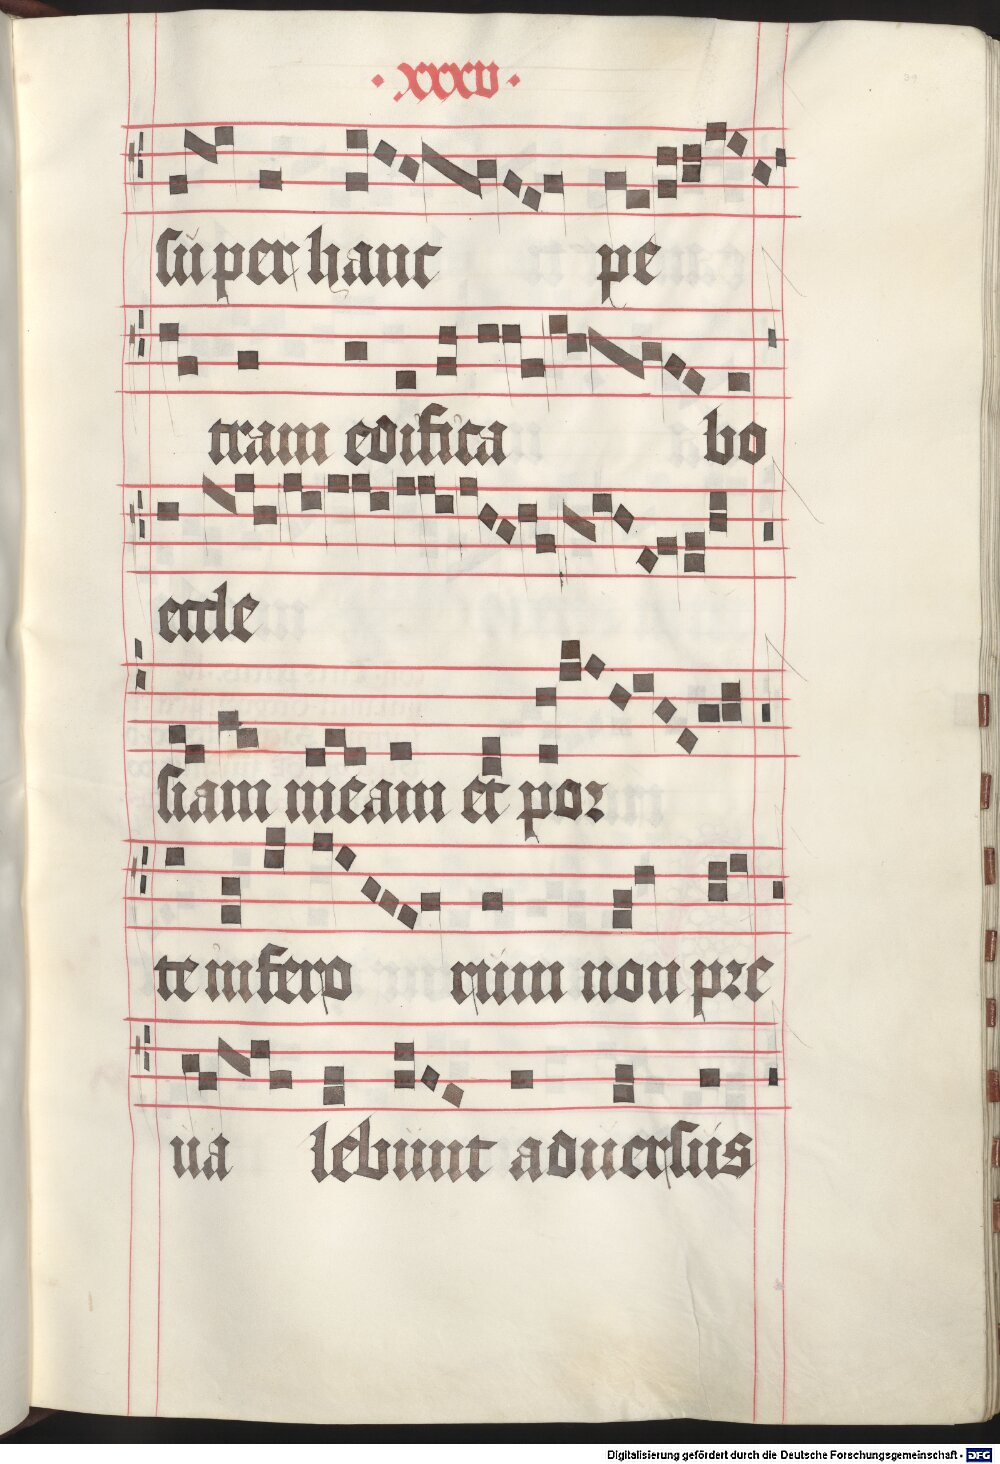 · xxxv ·
super hanc pe
tram edifica bo
eccle
siam meam et por
te infero rum non pre
ua lebunt aduersus
39
Digitalisierung gefördert durch die Deutsche Forschungsgemeinschaft - DFG